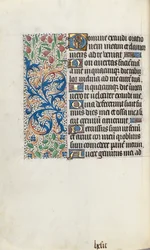 Domine exaudi oratio
nem meam et clamor
meus ad te veniat
Non avertas faciem tuam
a me in quacumque die tribu
lor inclina ad me aurem tuam
In quacumque die invoca
vero te velociter exaudi me
Quia defecerunt sicut fu
mus dies mei et ossa mea si
cut
Percussus sum ut fenum
et aruit cor meum quia oblitus
sum comedere panem meum
A voce gemitus mei ad